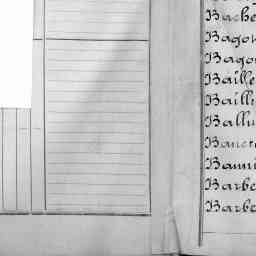 Bache
Bagon
Bago
Baille
Bailli
Ballu
Banc
Banni
Barbe
Barbe